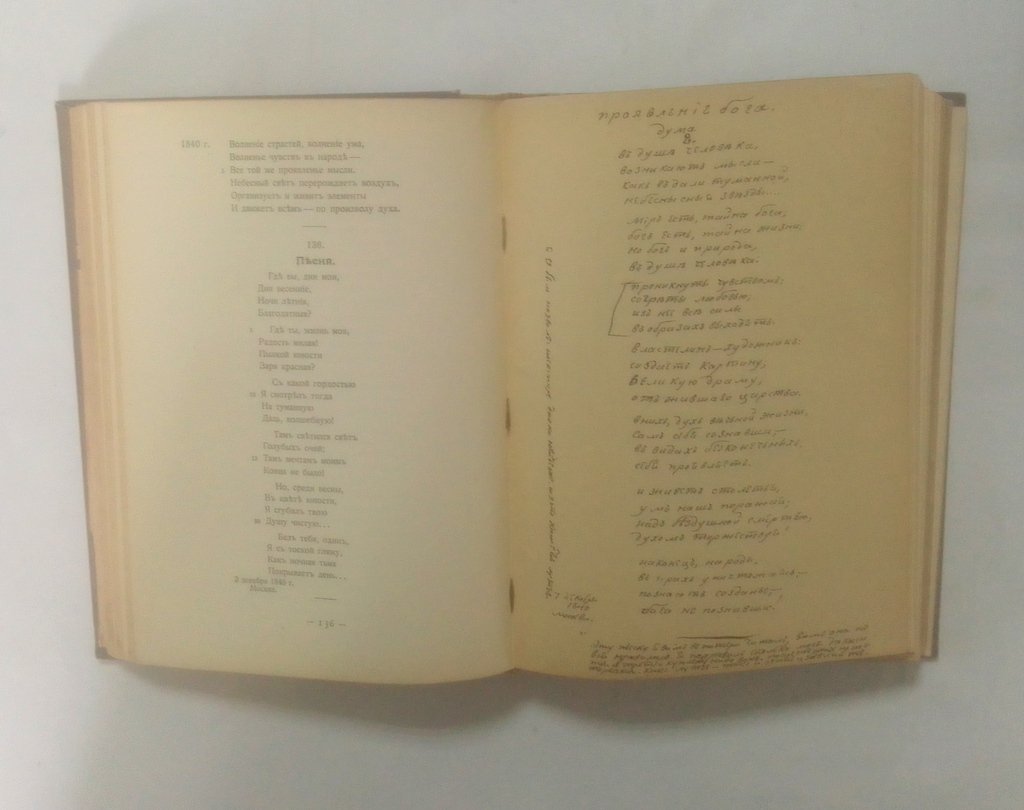 1840 г.
Волненіе страстей, волненіе ума,
Волненье чувствъ въ народѣ—
5 Все той же проявленье мысли.
Небесный свѣтъ перерождаетъ воздухъ,
Организуетъ и живитъ элементы
И движетъ всѣмъ—по произволу духа.
136.
Пѣсня.
Гдѣ вы, дни мои,
Дни весенніе,
Ночи лѣтнія,
Благодатныя?
5 Гдѣ ты, жизнь моя,
Радость милая!
Пылкой юности
Заря красная?
Съ какой гордостью
10 Я смотрѣлъ тогда
На туманную
Даль, волшебную!
Тамъ свѣтился свѣтъ
Голубыхъ очей;
15 Тамъ мечтамъ моимъ
Конца не было!
Но, среди весны,
Въ цвѣтѣ юности,
Я сгубилъ твою
20 Душу чистую...
Безъ тебя, одинъ,
Я съ тоской гляжу,
Какъ ночная тьма
Покрываетъ день...
2 декабря 1840 г.
Москва.
— 136 —
проявленіе бога.
дума
8.
въ душѣ человѣка,
возникаютъ мысли—
какъ въ дали туманной,
небесныи звѣзды....
міръ есть, тайна бога,
богъ есть, тайна жизни;
но богъ и природа,
въ душѣ человѣка.
проникнуты чувствомъ;
согрѣты любовью,
изъ нее всѣ силы
въ образахъ выходятъ.
властелинъ—художникъ:
создаетъ картину,
великую драму,
отъжившаго царства.
въ нихъ, духъ вѣчной жизни,
самъ себя сознавши,
въ видахъ безконечныхъ,
себя проявляетъ.
и живетъ столетья,
умъ нашъ поражая;
надъ бездушной смертью,
духомъ торжествуя
наконецъ, народы.
въ прахъ уничтожаясь,
познаютъ созданье,
бога не познавши.
1840
москва.